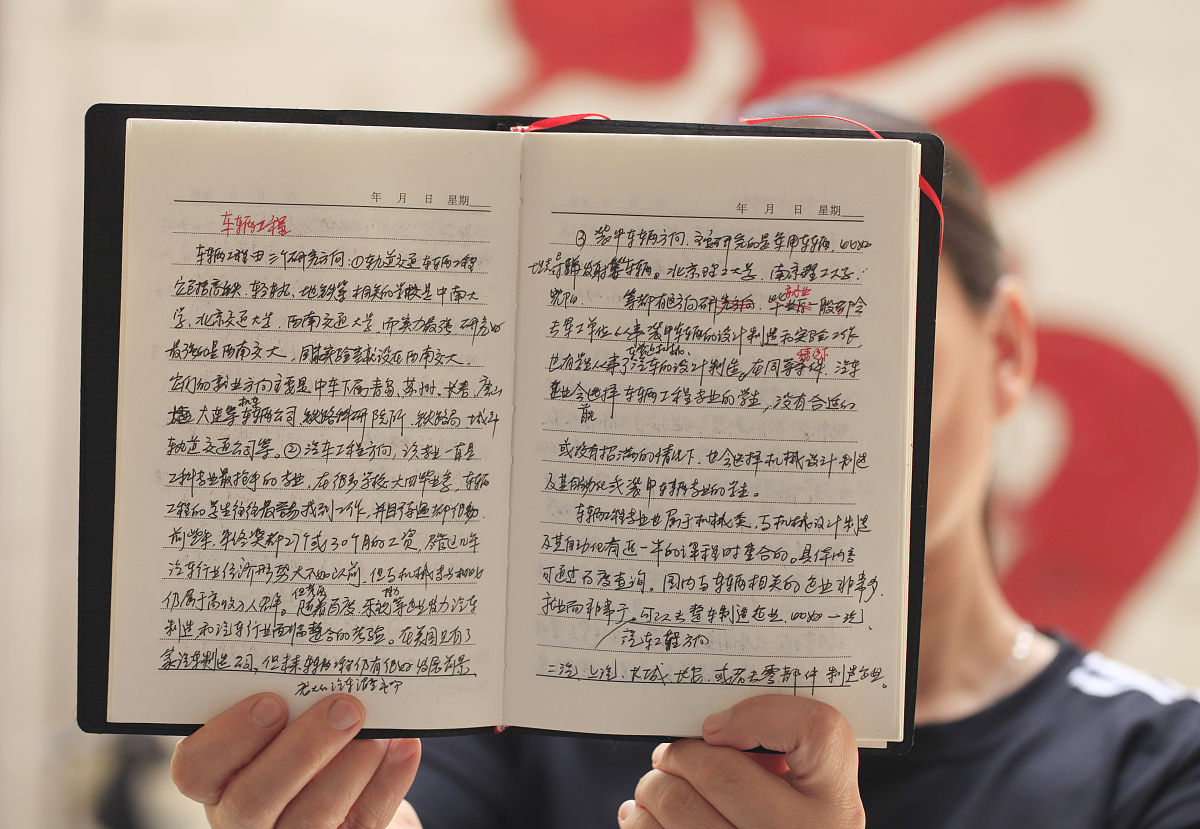 年 月 日 星期
车辆工程
车辆工程由三个研究方向:①轨道交通车辆工程
它包括高铁、轻轨、地铁等相关的学校是中南大
学、北京交通大学、西南交通大学,而实力最强研究
最强的是西南交大,国家实验室就设在西南交大。
它们的就业方向主要是中车下属青岛、苏州、长春、唐山
大连等机车车辆公司、铁路科研院所、铁路局、城市
轨道交通公司等。②汽车工程方向,该专业一直是
工科专业最抢手的专业,在很多学校大四毕业季,车辆
工程的学生往往最容易找到工作,并且待遇都很好
前些年,年终奖都27个或30个月的工资,尽管这几年
汽车行业经济形势大不如以前,但与机械专业相比
仍属于高收入人群。但是随着百度、乐视等企业助力汽车
制造和汽车行业面临整合的考验。在美国只有3
家汽车制造公司,但未来车辆工程仍有很好发展前景
年 月 日 星期
③装甲车辆方向,主要研究的是军用车辆,比如
坦克导弹发射等车辆。北京理工大学、南京理工大学
等都有这方向研究方向。毕业后一般都会
专业
去军工单位从事装甲车辆的设计制造和实验工作
也有些从事了汽车的设计制造。在同等条件 汽车
企业会选择车辆工程专业的学生,没有合适的
或没有招满的情况下,也会选择机械设计制造
及其自动化或装甲车辆专业的学生。
车辆工程专业也属于机械类,与机械设计制造
及其自动化有近一半的课程时重合的。具体内容
可通过百度查询。国内与车辆相关的企业非常多
就业面非常广。可以去整车制造企业,比如一汽、
汽车工程方向
二汽、上汽、长城、长安、或者去零部件制造企业。